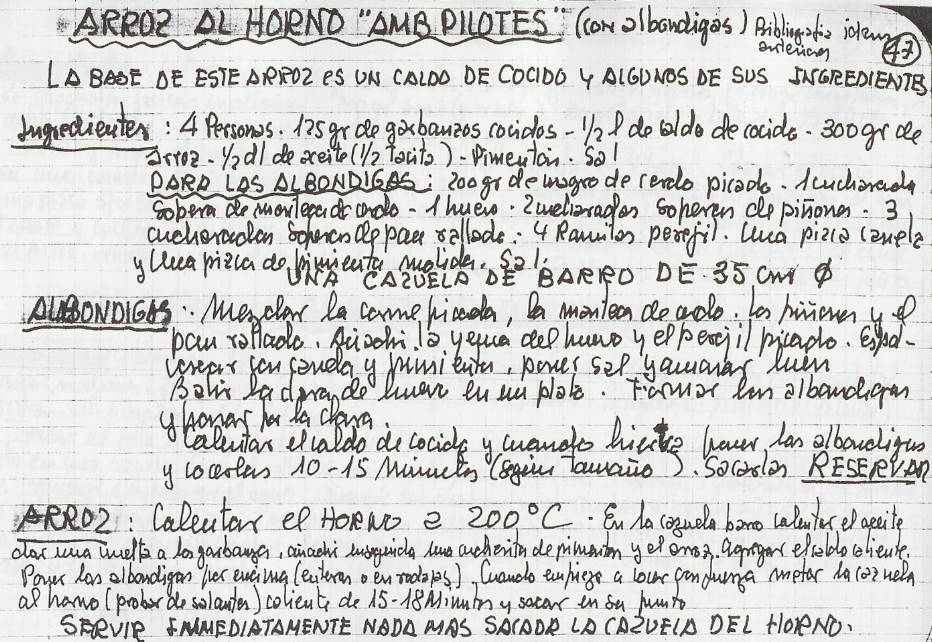 ARROZ AL HORNO "AMB PILOTES" (con albondigas) Bibliografia idem anteriores 47
LA BASE DE ESTE ARROZ ES UN CALDO DE COCIDO Y ALGUNOS DE SUS INGREDIENTES
Ingredientes: 4 Personas. 125 gr de garbanzos cocidos - 1/2 l de caldo de cocido - 300 gr de
arroz - 1/2 dl de aceite (1/2 Tacita) - Pimenton. Sal
PARA LAS ALBONDIGAS: 200 gr de magro de cerdo picado. 1 cucharada
sopera de manteca de cerdo - 1 huevo. 2 cucharadas soperas de piñones. 3
cucharadas soperas de pan rallado. 4 Ramitas perejil. Una pizca canela
y Una pizca de pimienta molida. Sal.
UNA CAZUELA DE BARRO DE 35 cm Ø
ALBONDIGAS. Mezclar la carne picada, la manteca de cerdo, los piñones y el
pan rallado. Añadir la yema del huevo y el perejil picado. Espol-
vorear con canela y pimienta, poner sal y amasar bien
Batir la clara de huevo en un plato. Formar las albondigas
y pasar por la clara.
Calentar el caldo de cocido y cuando hierva poner las albondigas
y cocerlas 10-15 Minutos (segun Tamaño). Sacarlas RESERVAR
ARROZ: Calentar el HORNO a 200°C. En la cazuela barro calentar el aceite
dar una vuelta a los garbanzos, añadir enseguida una cucharita de pimenton y el arroz, agregar el caldo caliente.
Poner las albondigas por encima (enteras o en rodajas). Cuando empiece a cocer con fuerza meter la cazuela
al horno (probar de sal antes) caliente de 15-18 Minutos y sacar en su punto
SERVIR INMEDIATAMENTE NADA MAS SACADA LA CAZUELA DEL HORNO.